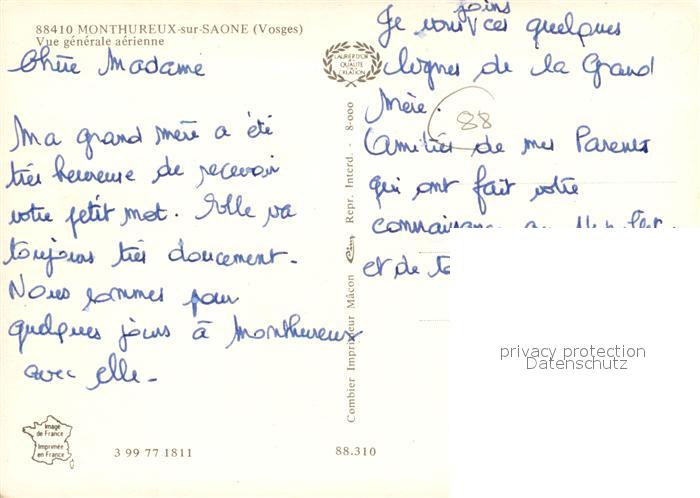 88410 MONTHUREUX-sur-SAONE (Vosges)
Vue générale aérienne
Chère Madame
Ma grand mère a été
très heureuse de recevoir
votre petit mot. Elle va
toujours très doucement.
Nous sommes pour
quelques jours à Monthureux
avec elle.
Je vous joins ces quelques
lignes de la Grand
Mère.
88
Amitiés de mes Parents
qui ont fait votre
connaissance au
et de
LAURIER D'OR
QUALITE
CREATION
Combier Imprimeur Mâcon Cim Repr. Interd. - 8-000
Image
de France
Imprimée
en France
3 99 77 1811
88.310
privacy protection
Datenschutz